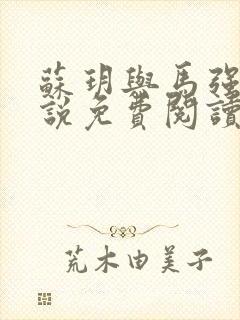 蘇玥與馬強
說免費閱讀
荒木由美子